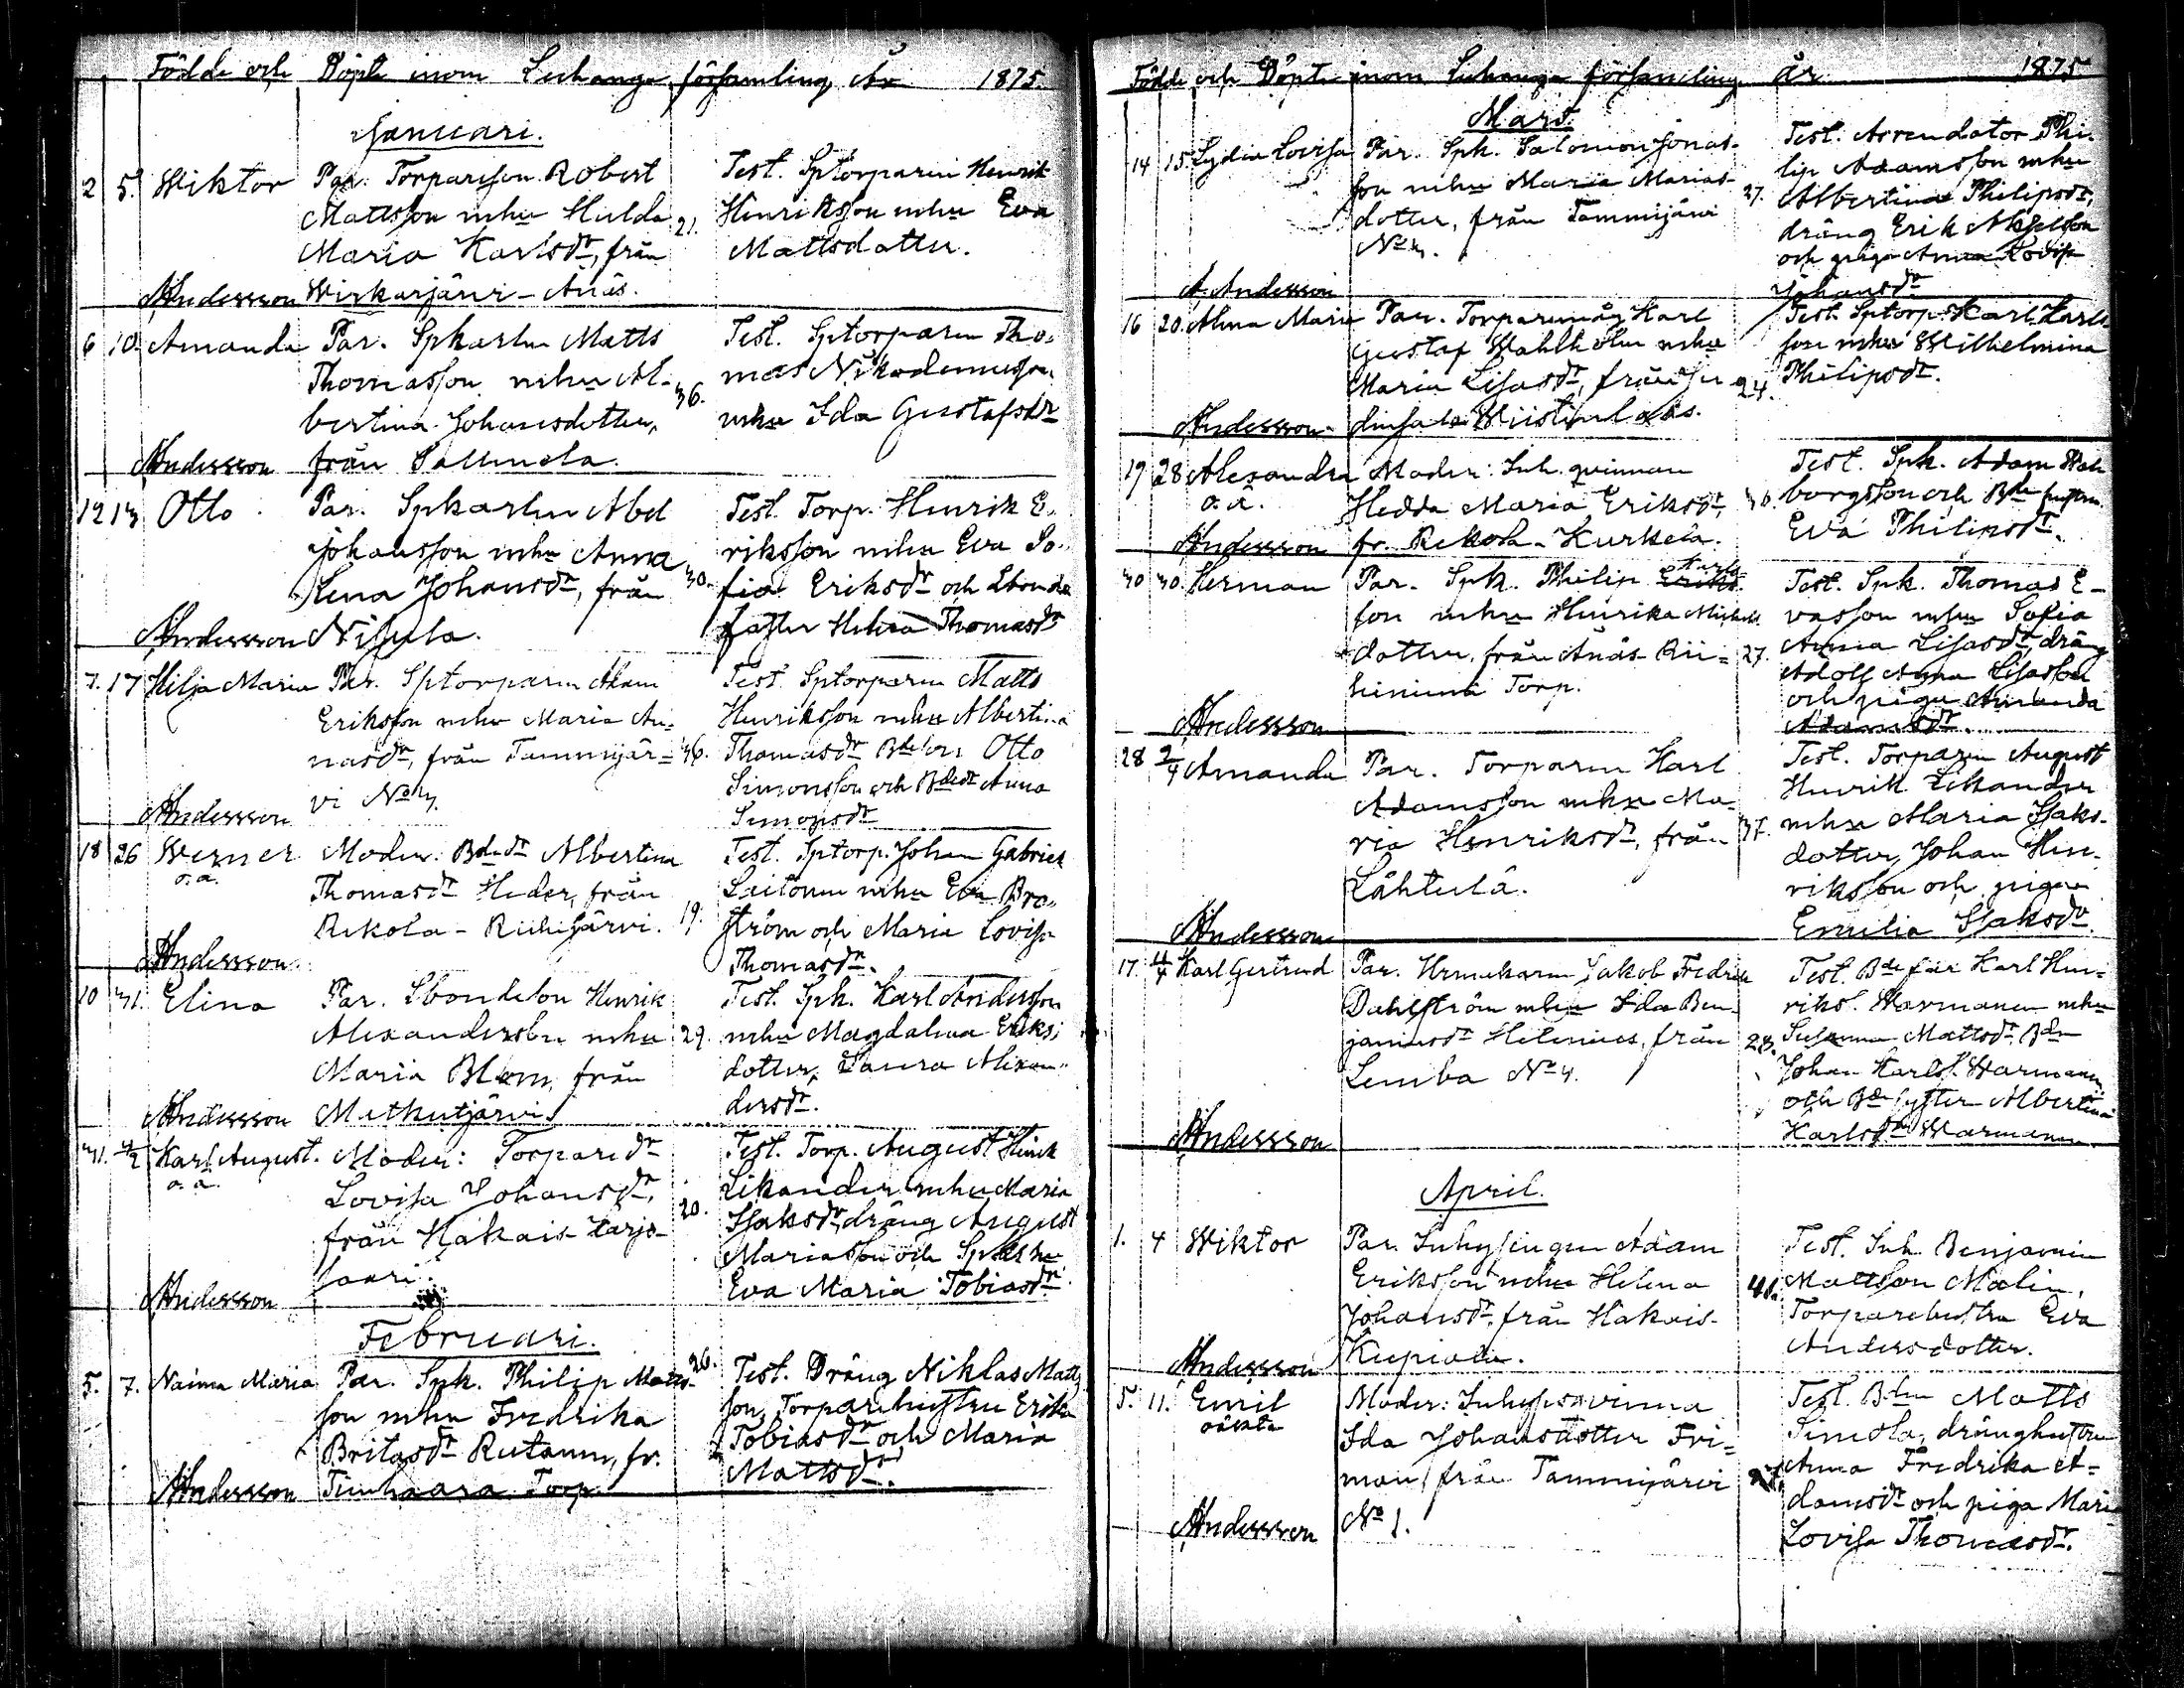 Födde och Döpte inom Luhanga församling År 1875.
Januari.
2 5. Wiktor Par. Torpareson Robert
Mattsson mhu Hulda
Maria Karlsdr, från
Andersson Wirkarjärvi - Anäs.
21.
Test. Sptorparen Henrik
Henriksson mhu Eva
Mattsdotter.
6 10. Amanda Par. Spkarlen Matts
Thomasson mhu Al-
bertina Johansdotter,
Andersson från
36.
Test. Sptorparen Tho-
mas Nikodemusson
mhu Ida Gustafsdr
12 13 Otto Par. Spkarlen Abel
Johansson mhu Anna
Lena Johansdr, från
Andersson Nisula.
30.
Test. Torp. Henrik E-
riksson mhu Eva So-
fia Eriksdr och
Helena Thomasdr
7. 17 Hilja Maria Par. Sptorparen Adam
Eriksson mhu Maria An-
nasdr, från Tammijär-
Andersson vi No 3.
36.
Test. Sptorparen Matts
Henriksson mhu Albertina
Thomasdr Bdeson Otto
Simonsson och Bdedr Anna
Simonsdr
18 26 Werner Moder: Bdedr Albertina
o.ä. Thomasdr Heder, från
Rekola - Riihijärvi.
Andersson
19.
Test. Sptorp. Johan Gabriel
mhu Eva Bro-
ström och Maria Lovisa
Thomasdr.
10 31. Elina Par. Henrik
Alexandersson mhu
Maria Blom, från
Andersson Matkutjärvi
29.
Test. Spk. Karl Andersson
mhu Magdalena Eriks-
dotter, Laura Alexan-
dersdr.
31. 4/2 Karl August. Moder: Torparedr
o.ä. Lovisa Johansdr,
från Hakais - Tarjo-
Andersson saari.
20.
Test. Torp. August Henrik
Likander mhu Maria
Isaksdr, dräng August
Mariasson och
Eva Maria Tobiasdr
Februari.
5. 7. Naima Maria Par. Spk. Philip Matts-
son mhu Fredrika
Britasdr Rutanen, fr.
Andersson Tiinhaara Torp
26.
Test. Dräng Niklas Matts-
son, Torparehustru Erika
Tobiasdr och Maria
Mattsdr.
Födde och Döpte inom Luhanga församling år 1875
Mars.
14 15. Lydia Lovisa Par. Spk. Salomon Jonas-
son mhu Maria Marias-
dotter, från Tammijärvi
No 3.
A. Andersson
27.
Test. Arrendator Phi-
lip Adamsson mhu
Albertina Philipsdr,
dräng Erik Akselsson
och piga Anna Lovisa
Johansdr
16 20. Alma Maria Par. Torparemåg Karl
Gustaf Wahlholm mhu
Maria Lisasdr, från
Andersson
24.
Test. Sptorp. Karl Karls-
son mhu Wilhelmina
Philipsdr.
19 28 Alexandra Moder: Inh. qvinnan
o.ä. Hedda Maria Eriksdr,
Andersson fr. Rekola - Kurkela.
36.
Test. Spk. Adam
och
Eva Philipsdr.
30 30. Herman Par. Spk. Philip Eriks- Karls-
son mhu Henrika Michels-
dotter, från Anäs - Rii-
Torp.
Andersson
27.
Test. Spk. Thomas E-
vasson mhu Sofia
Anna Lisasdr, dräng
Adolf Anna Lisasson
och piga Amanda
Adamsdr.
28 2/4 Amanda Par. Torparen Karl
Adamsson mhu Ma-
ria Henriksdr, från
Lähtelä.
Andersson
37.
Test. Torparen August
Henrik Likander
mhu Maria Isaks-
dotter, Johan Hen-
riksson och pigan
Emilia Isaksdr.
17. 4/4 Karl Gertrud Par. Jakob Fredrik
Dahlström mhu Ida Ben-
jaminsdr Helenius, från
Lemba No 4.
Andersson
28.
Test. Karl Hen-
riks. Warmanen mhu
Susanna Mattsdr,
Johan Karlss. Warmanen
och Albertina
Karlsdr Warmanen
April.
1. 4 Wiktor Par. Inhysingen Adam
Eriksson mhu Helena
Johansdr, från Hakais -
Andersson Kupiala.
41.
Test. Inh. Benjamin
Mattsson Malin,
Torparehustru Eva
Andersdotter.
5. 11. Emil Moder: Inhysqvinna
oäkta Ida Johansdotter Fri-
man, från Tammijärvi
Andersson No 1.
Test. Bden Matts
Simola, dränghustru
Anna Fredrika A-
damsdr och piga Maria
Lovisa Thomasdr.